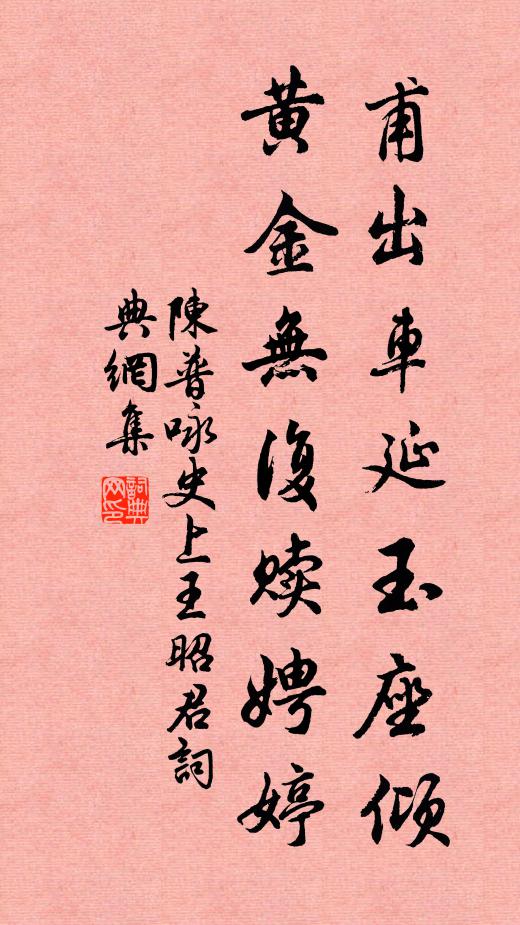 甫出車延玉座傾
黄金無復贖娉婷
陳普咏史上王昭君詞
典網集
詞典網印